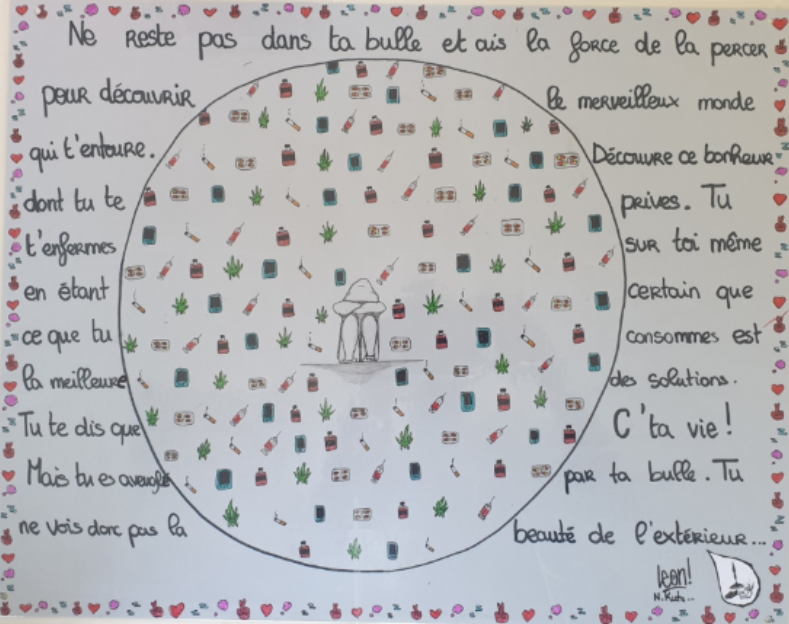 Ne reste pas dans ta bulle et ais la force de la percer
pour découvrir le merveilleux monde
qui t'entoure. Découvre ce bonheur
dont tu te prives. Tu
t'enfermes sur toi même
en étant certain que
ce que tu consommes est
la meilleure des solutions.
Tu te dis que C'ta vie !
Mais tu es aveuglé par ta bulle. Tu
ne vois donc pas la beauté de l'extérieur...